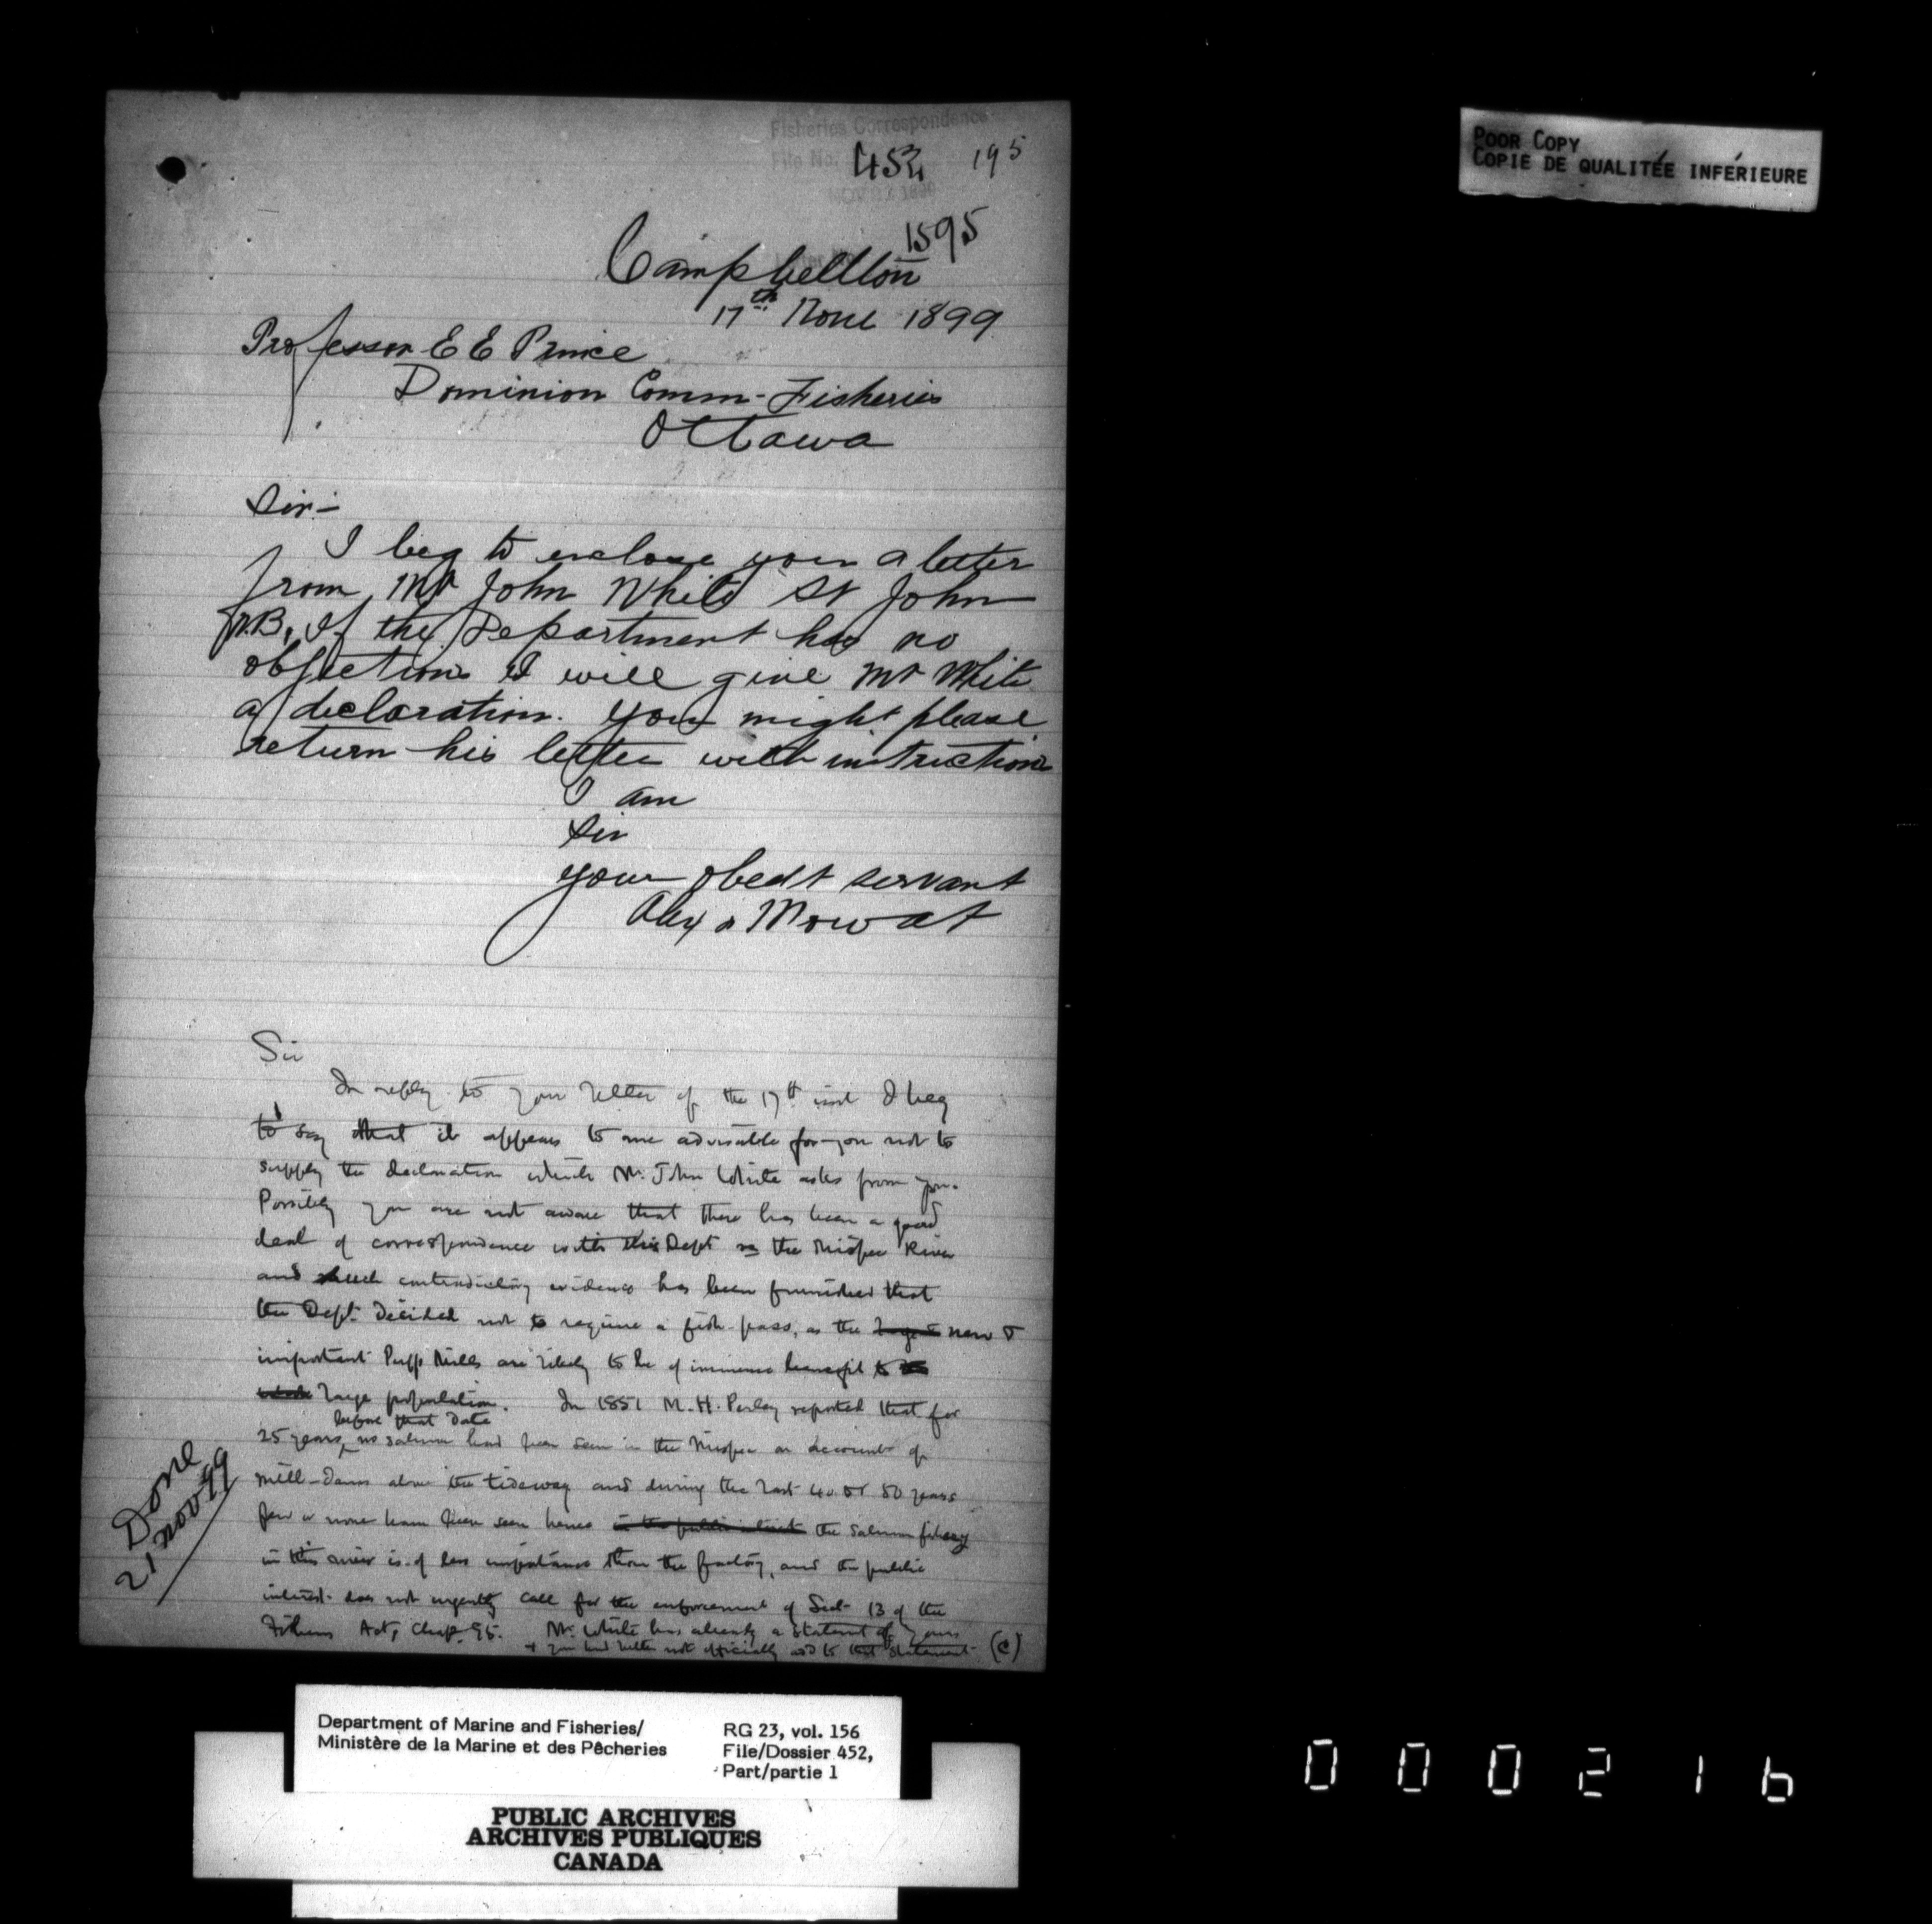 Fisheries Correspondence
File No. 452 195
NOV 1899
1595
Campbellton
17th Nove 1899
Professor E E Prince
Dominion Comm- Fisheries
Ottawa
Sir-
I beg to enclose you a letter
from Mr John White St John
N.B. If the Department has no
objections I will give Mr White
a declaration. You might please
return his letter with instructions
I am
Sir
your obedt servant
Alex Mowat
Sir
In reply to your letter of the 17th inst I beg
to say that it appears to me advisable for you not to
supply the declaration which Mr. John White asks from you.
Possibly you are not aware that there has been a good
deal of correspondence with this Dept re the Mispec River
and such contradictory evidence has been furnished that
the Dept. decided not to require a fish-pass, as the new &
important Pulp Mills are likely to be of immense benefit to
large population. In 1851 M. H. Perley reported that for
25 years before that date no salmon had been seen in the Mispec on account of
mill-dams above the tideway and during the last 40 or 50 years
few or none have been seen hence the salmon fishery
in this river is of less importance than the factory, and the public
interest does not urgently call for the enforcement of Sect 13 of the
Fisheries Act, Chap. 95. Mr. White has already a statement of yours
& you had better not officially add to that statement (C)
Done
21 Nov 99
POOR COPY
COPIE DE QUALITÉE INFÉRIEURE
Department of Marine and Fisheries/
Ministère de la Marine et des Pêcheries
RG 23, vol. 156
File/Dossier 452,
Part/partie 1
PUBLIC ARCHIVES
ARCHIVES PUBLIQUES
CANADA
000216